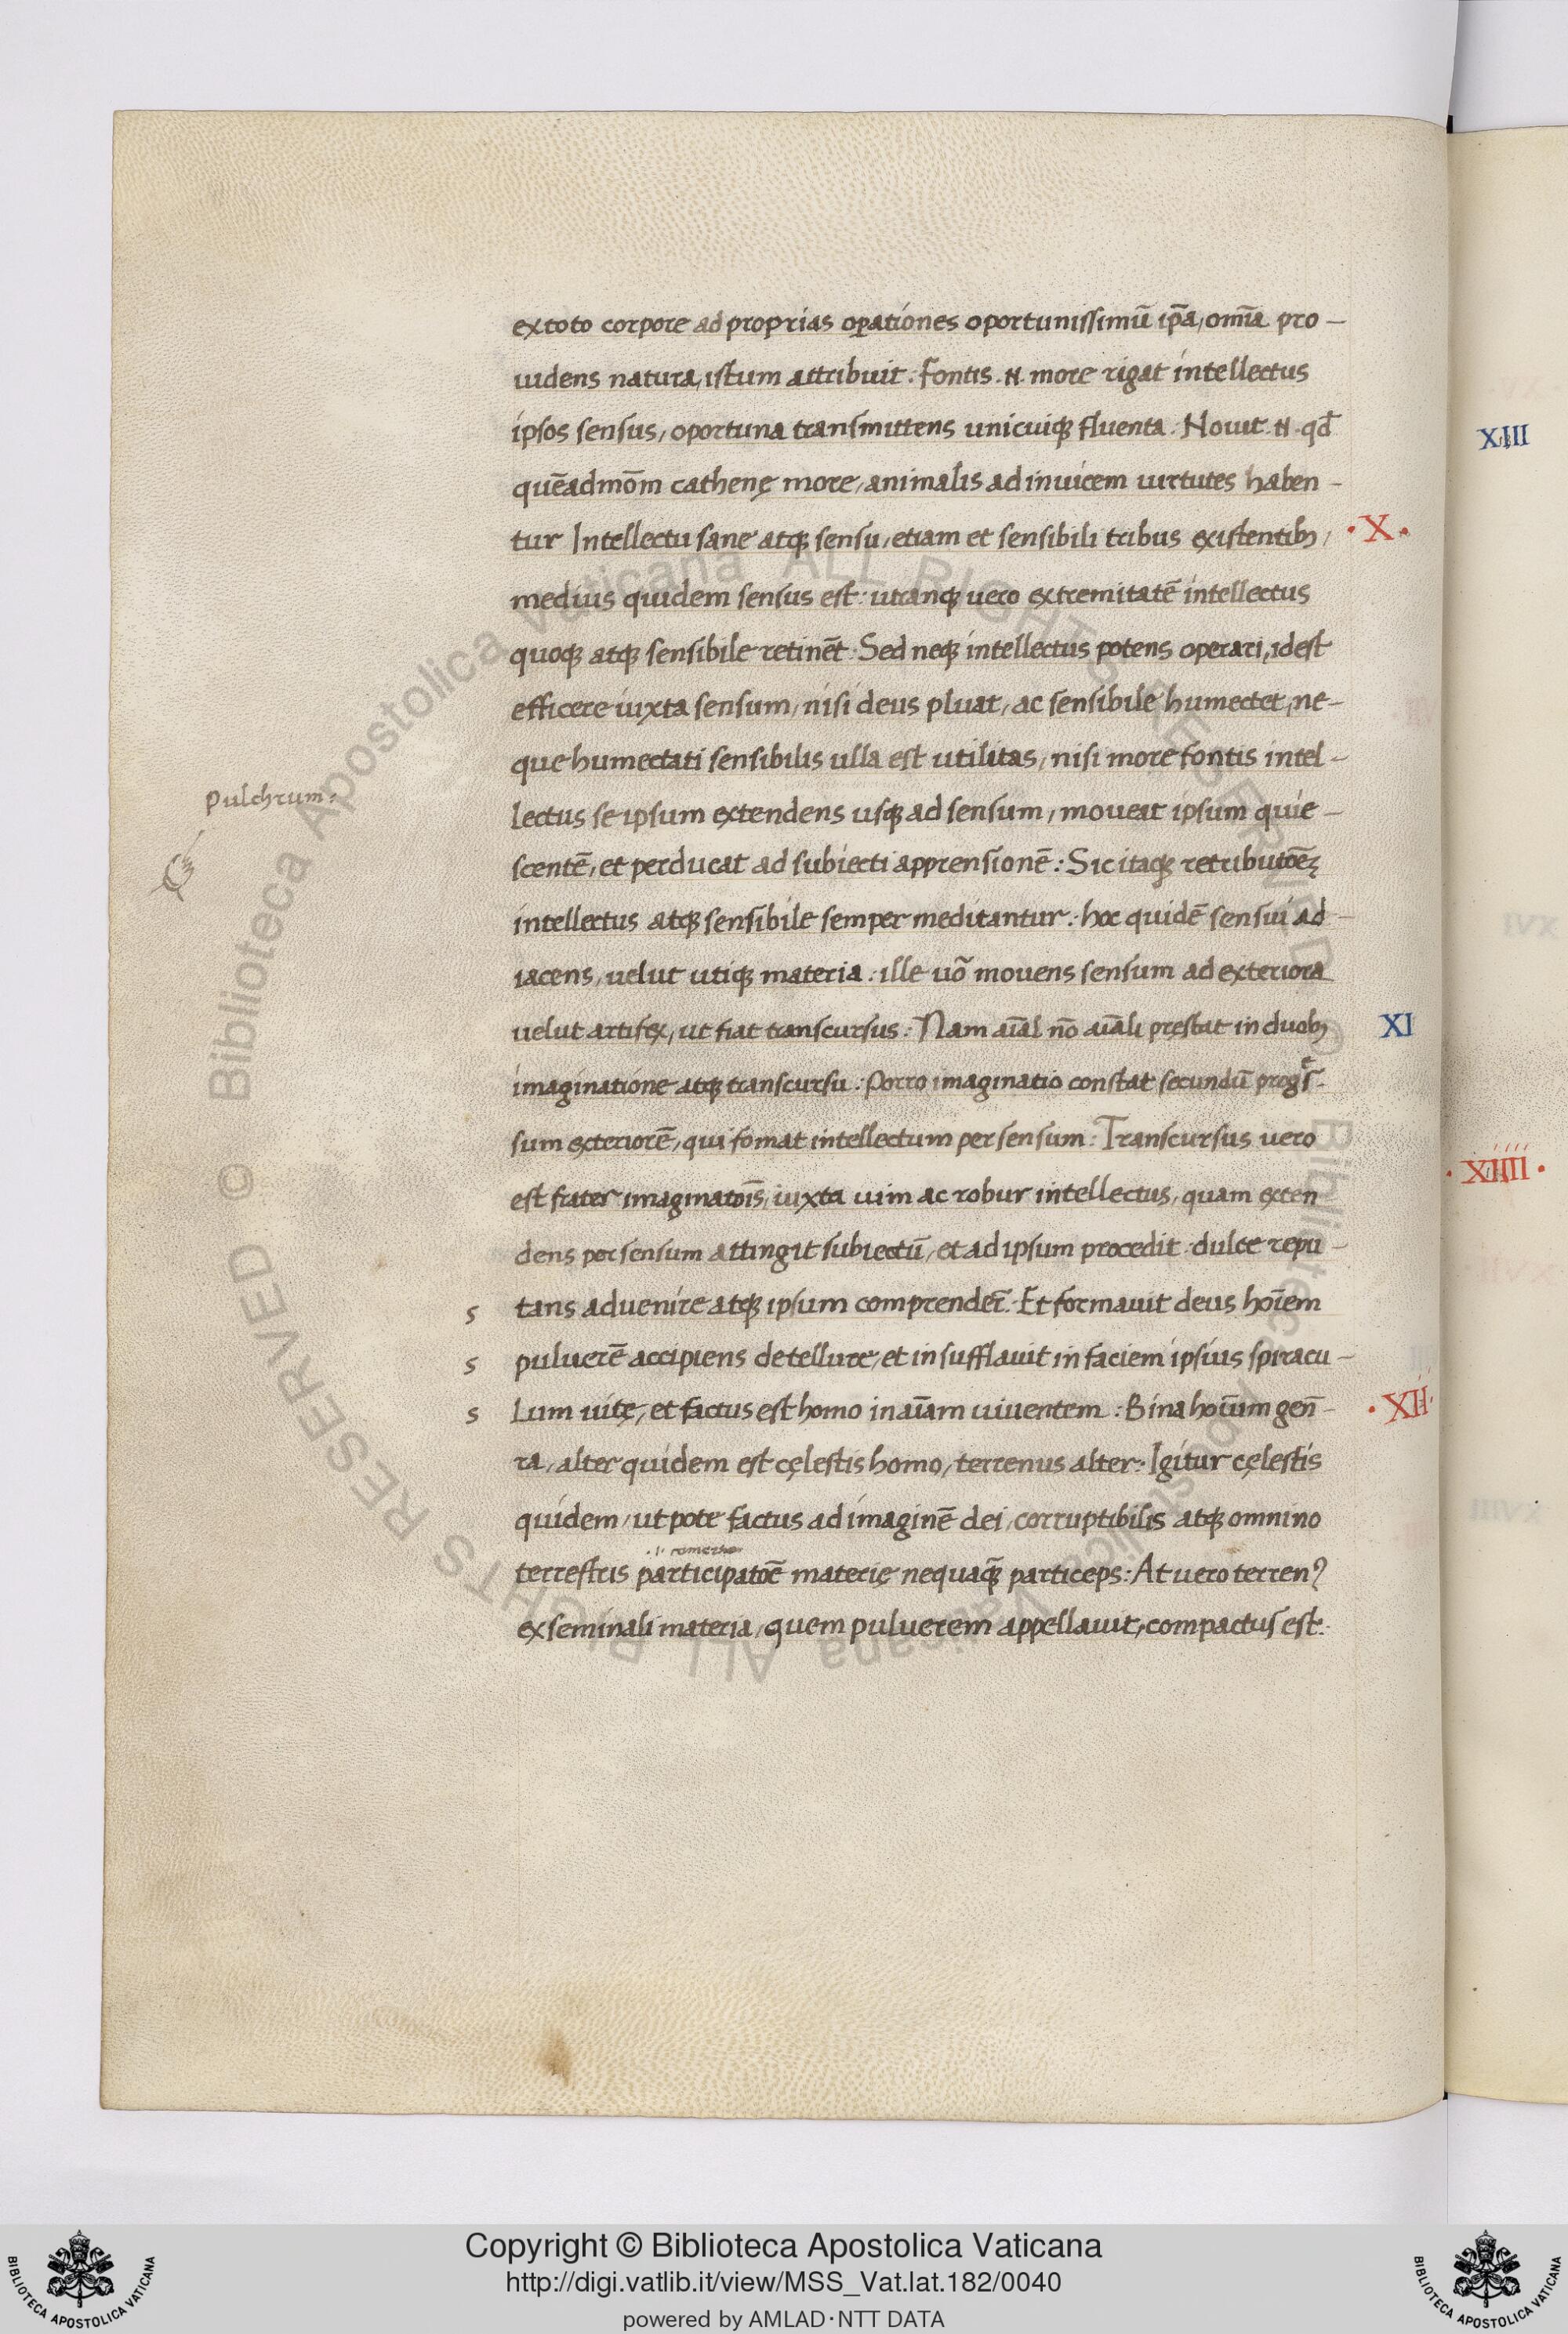 ex toto corpore ad proprias oꝑationes oportunissimū ip̄a, om̄ia pro-
uidens natura, istum attribuit. Fontis .N. more rigat intellectus
ipsos sensus, oportuna transmittens unicuiqꝫ fluenta. Nouit .N. qd̄
quēadmōm cathenę more, animalis adinuicem uirtutes haben-
tur Intellectu sane atqꝫ sensu, etiam et sensibili tribus existentibꝫ,
·X·
medius quidem sensus est: utranqꝫ uero extremitatē intellectus
quoqꝫ atqꝫ sensibile retinēt. Sed neqꝫ intellectus potens operari, idest
efficere iuxta sensum, nisi deus pluat, ac sensibile humectet, ne-
que humectati sensibilis ulla est utilitas, nisi more fontis intel-
Pulchrum:
lectus se ipsum extendens usqꝫ ad sensum, moueat ipsum quie-
scentē, et perducat ad subiecti apprensionē: Sic itaqꝫ retributōēꝫ
intellectus atqꝫ sensibile semper meditantur: hoc quidē sensui ad-
iacens, uelut utiqꝫ materia: ille uō mouens sensum ad exteriora
uelut artifex, ut fiat transcursus: Nam aīal nō aīali pręstat in duobꝫ
XI
imaginatione atqꝫ transcursu: Porro imaginatio constat secundū progs̄-
sum exteriorē, qui fomat intellectum per sensum: Transcursus uero
est frater imaginatōīs, iuxta uim ac robur intellectus, quam exten
dens per sensum attingit subiectū, et ad ipsum procedit: dulce repu-
s tans aduenire atqꝫ ipsum comprender̄. Et formauit deus hoīem
s puluerē accipiens de tellure, et insufflauit in faciem ipsius spiracu-
s Lum uitę, et factus est homo in aīam uiuentem: Bina hoīum gen̄-
·XII·
ra, alter quidem est cęlestis homo, terrenus alter: Igitur cęlestis
quidem, utpote factus ad imaginē dei, corruptibilis atqꝫ omnino
terrestris participatōē materię nequaqꝫ̄ particeps: At uero terrenꝰ
ex seminali materia, quem puluerem appellauit, compactus est.
XIII
·XIIII·
Copyright © Biblioteca Apostolica Vaticana
http://digi.vatlib.it/view/MSS_Vat.lat.182/0040
powered by AMLAD·NTT DATA
BIBLIOTECA APOSTOLICA VATICANA
BIBLIOTECA APOSTOLICA VATICANA